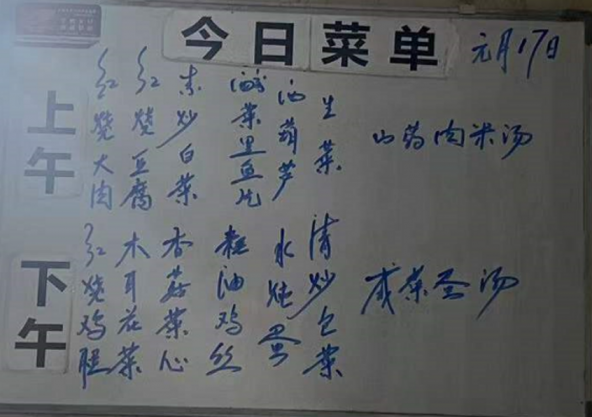 今日菜单
元月17日
上午
红烧大肉
红烧豆腐
素炒白菜
酸菜里鱼片
油葫芦
生菜
山药肉米汤
下午
红烧鸡腿
木耳花菜
香菇菜心
粧油鸡丝
水炖蛋
清炒包菜
咸菜蛋汤